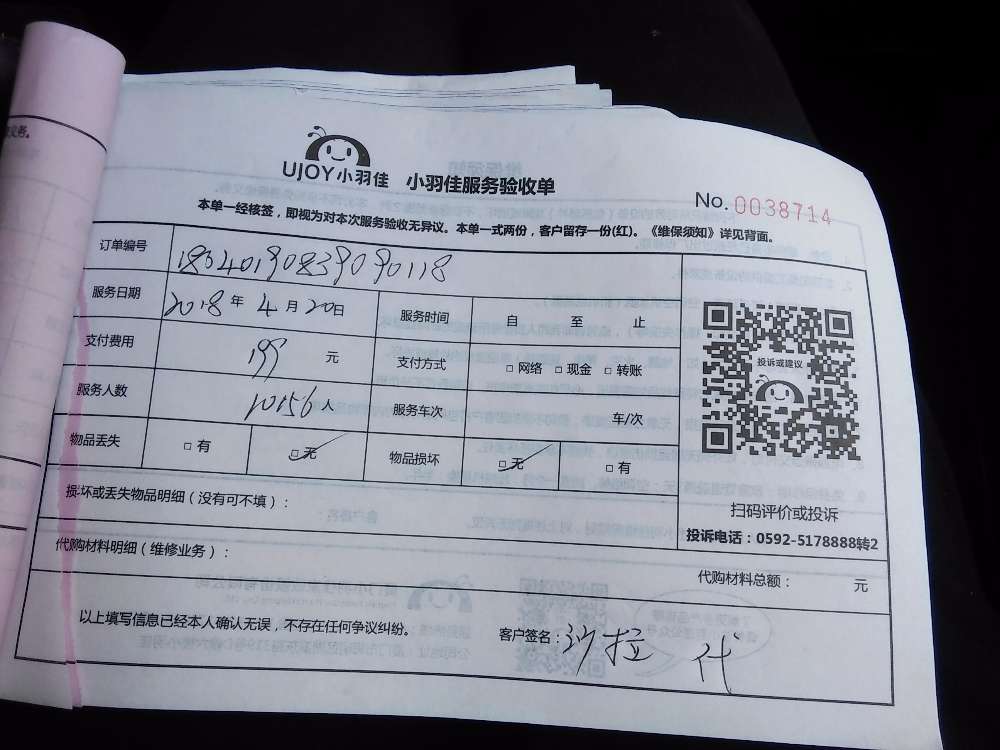 UJOY小羽佳 小羽佳服务验收单
No.0038714
本单一经核签，即视为对本次服务验收无异议。本单一式两份，客户留存一份(红)。《维保须知》详见背面。
订单编号
服务日期 2018年4月20日 服务时间 自 至 止
支付费用 199 元 支付方式 □网络 □现金 □转账
服务人数 10156人 服务车次 车/次
物品丢失 □有 □无 物品损坏 □无 □有
损坏或丢失物品明细（没有可不填）：
投诉或建议
扫码评价或投诉
投诉电话：0592-5178888转2
代购材料明细（维修业务）：
代购材料总额： 元
以上填写信息已经本人确认无误，不存在任何争议纠纷。
客户签名： 代